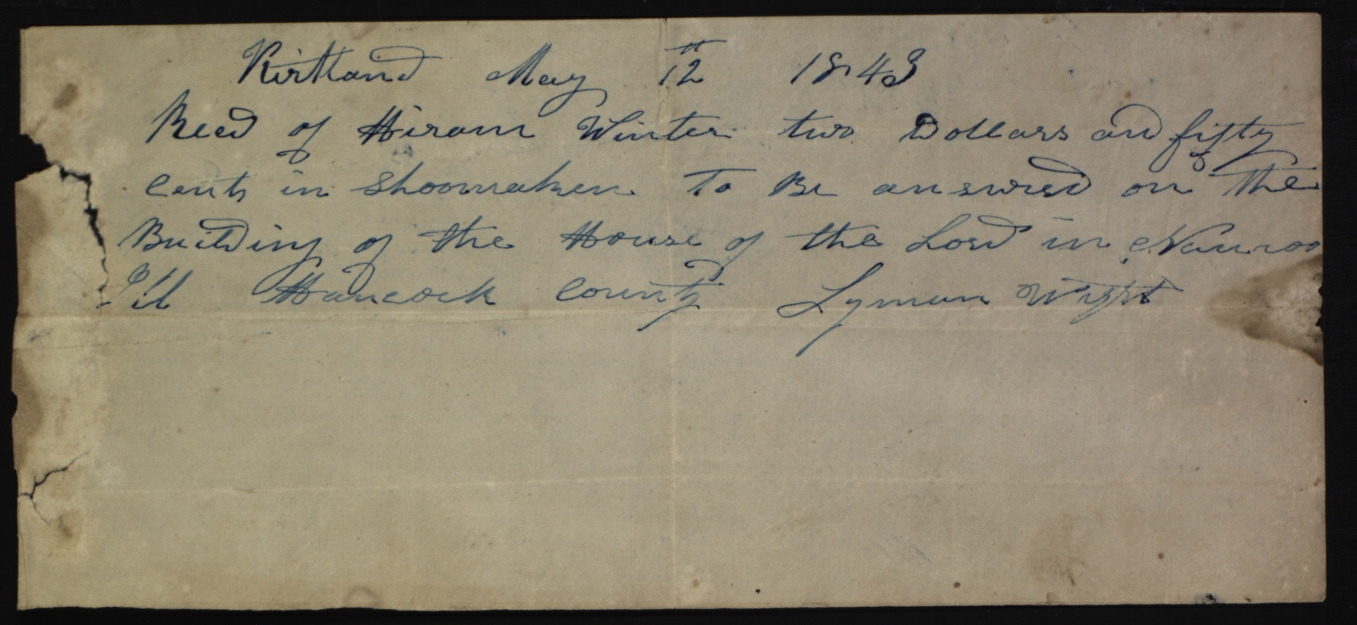 Kirtland May 12th 1843
Recd of Hiram Winter two Dollars and fifty
cents in Shoomaken To Be answred on the
Building of the House of the Lord in Nauvoo
Ill Hancock County Lyman Wight